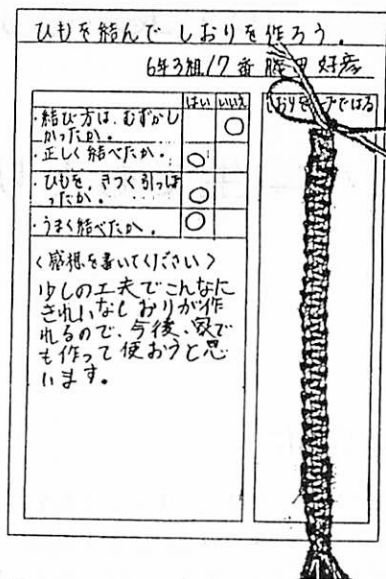 ひもを結んで しおりを作ろう.
6年3組17番 勝田 好彦
はい いいえ
・結び方は、むずかし
かったか。
○
・正しく結べたか.
○
・ひもを, きつく引っぱ
ったか.
○
・うまく結べたか.
○
しおりをテープではる
〈感想を書いてください〉
少しの工夫でこんなに
きれいなしおりが作
れるので、今後、家で
も作って使おうと思
います。